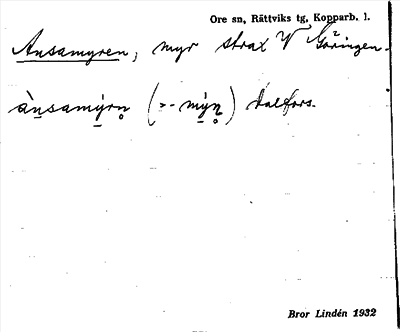 Ore sn, Rättviks tg, Kopparb. l.
Ansamyren, myr strax V Göringen.
ànsamýrn̥ (>- mýn̥) Dalfors.
Bror Lindén 1932